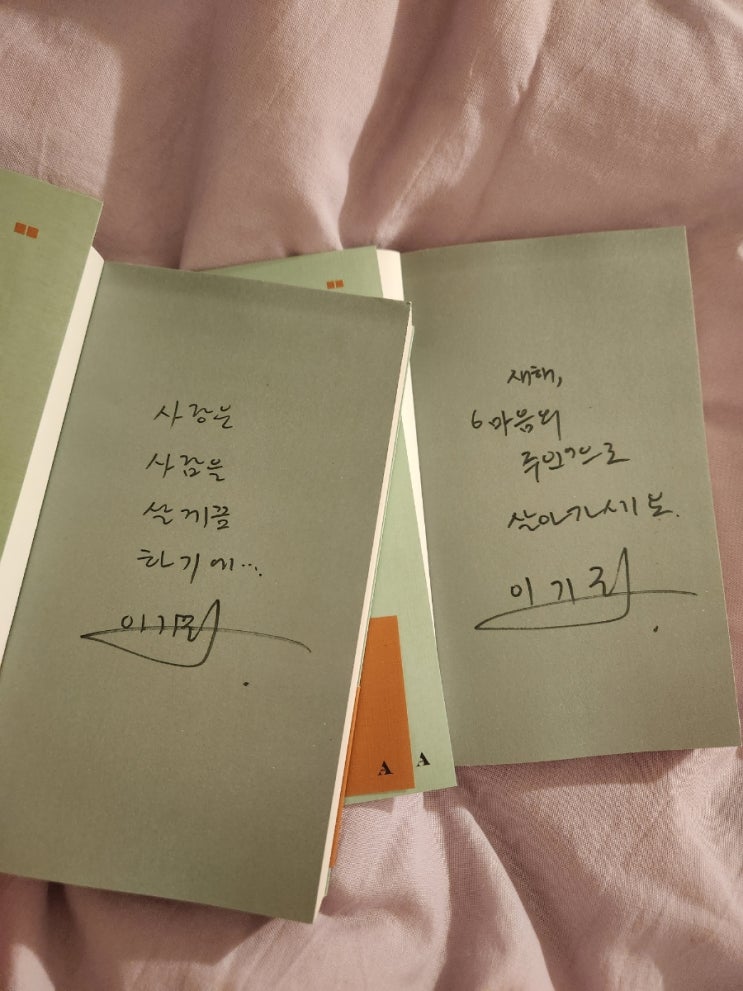 사랑은
사람을
살게끔
하기에...
이기주
새해,
‘마음의
주인’으로
살아가시기를.
이기주
A A